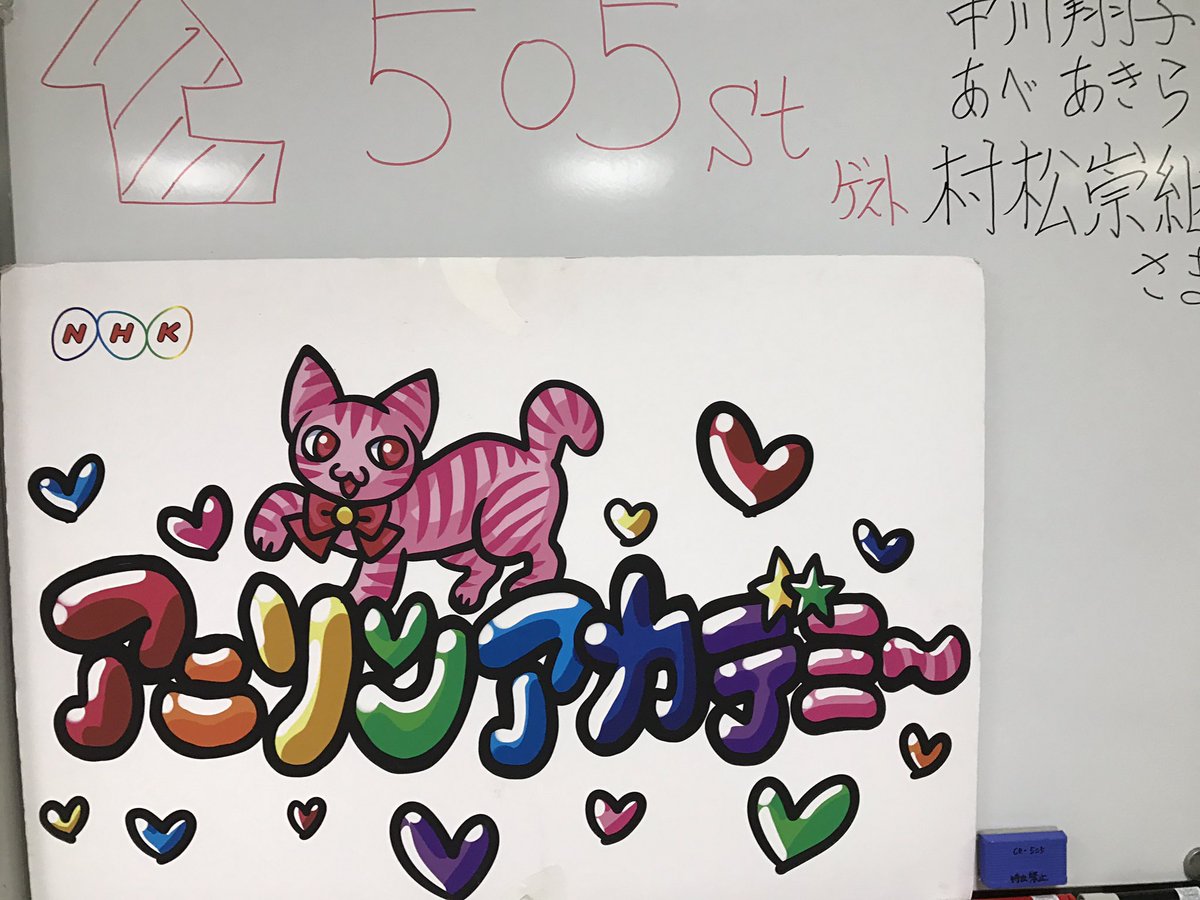 505st
中川翔子
あべあきら
ゲスト 村松崇継
さま
NHK
アニソンアカデミー
CR-505
持出禁止